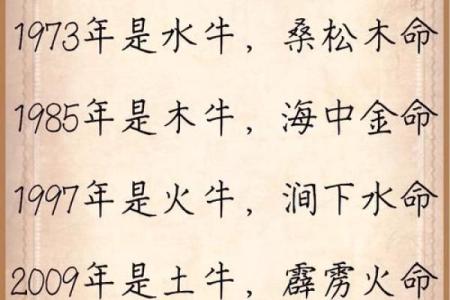 1973年是水牛，桑松木命
1985年是木牛，海中金命
1997年是火牛，涧下水命
2009年是土牛，霹雳火命